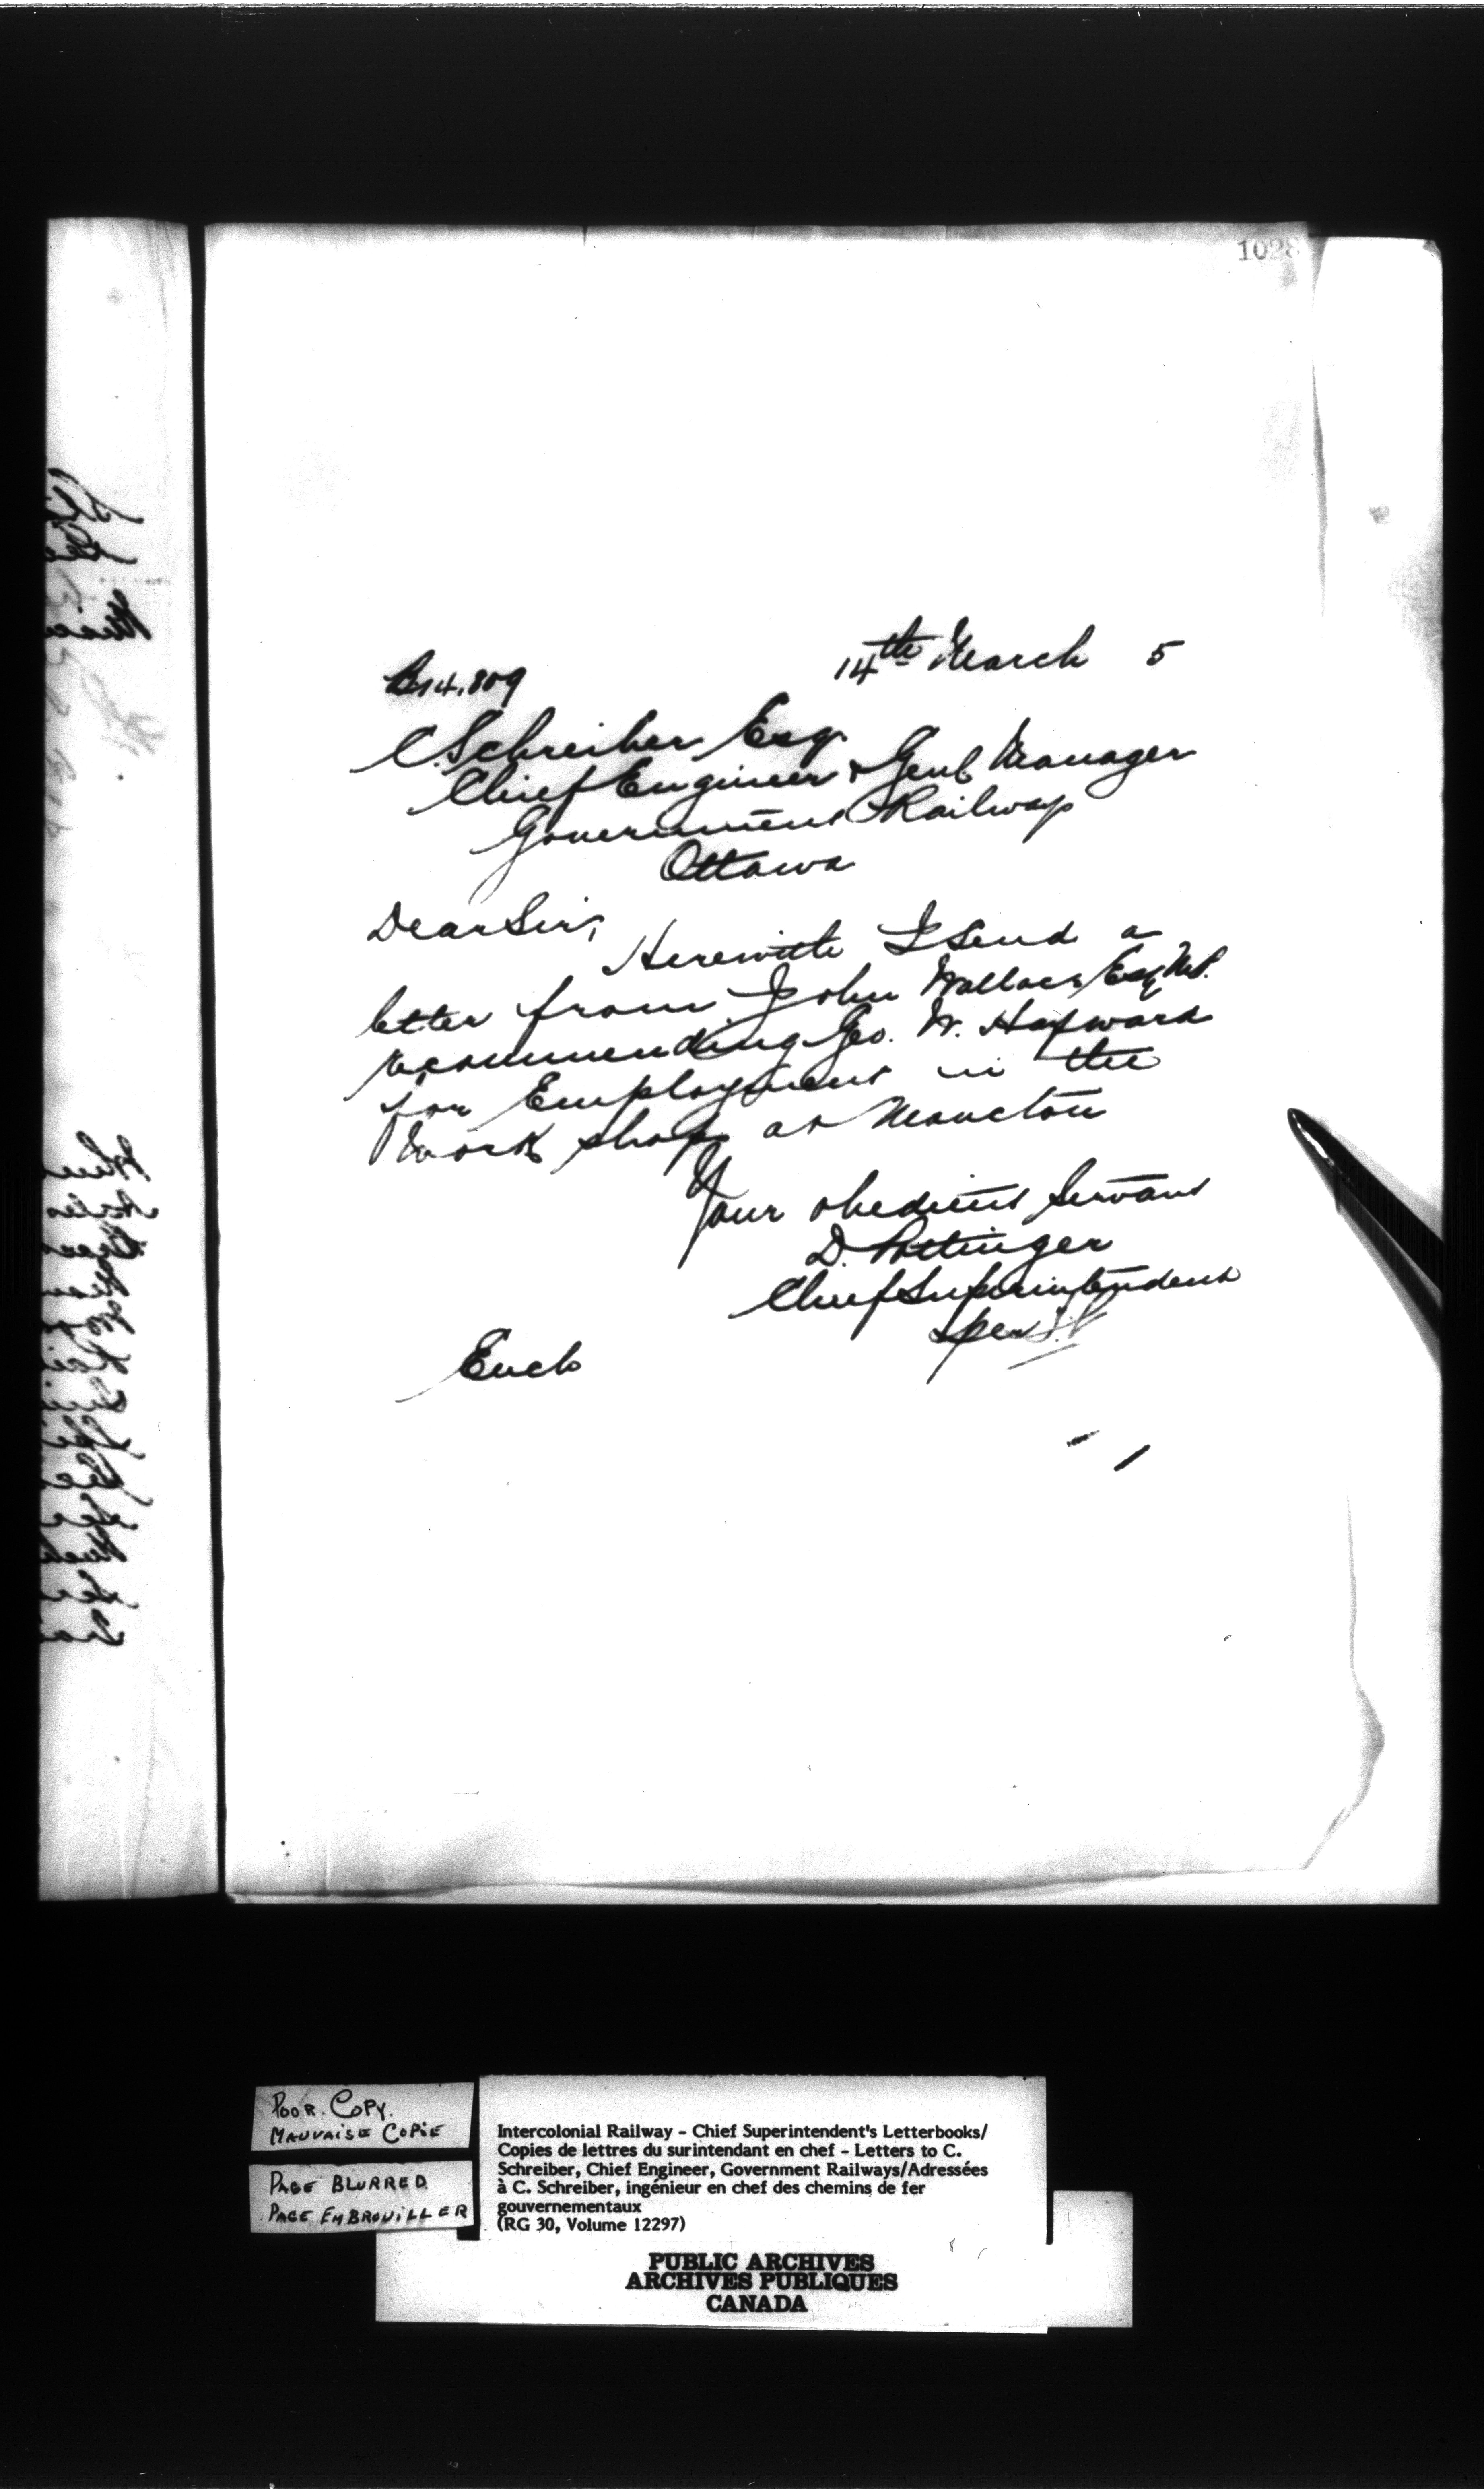 1028
14th March 5
B.14.809
C. Schreiber Esq.
Chief Engineer & Genl Manager
Government Railways
Ottawa
Dear Sir,
Herewith I send a
letter from John Wallace Esq M.P.
recommending Geo. W. Hayward
for Employment in the
Work shops at Moncton
Your obedient Servant
D. Pottinger
Chief Superintendent
per
Encl
POOR. COPY.
MAUVAISE COPIE
PAGE BLURRED
PAGE EMBROUILLER
Intercolonial Railway - Chief Superintendent's Letterbooks/
Copies de lettres du surintendant en chef - Letters to C.
Schreiber, Chief Engineer, Government Railways/Adressées
à C. Schreiber, ingénieur en chef des chemins de fer
gouvernementaux
(RG 30, Volume 12297)
PUBLIC ARCHIVES
ARCHIVES PUBLIQUES
CANADA